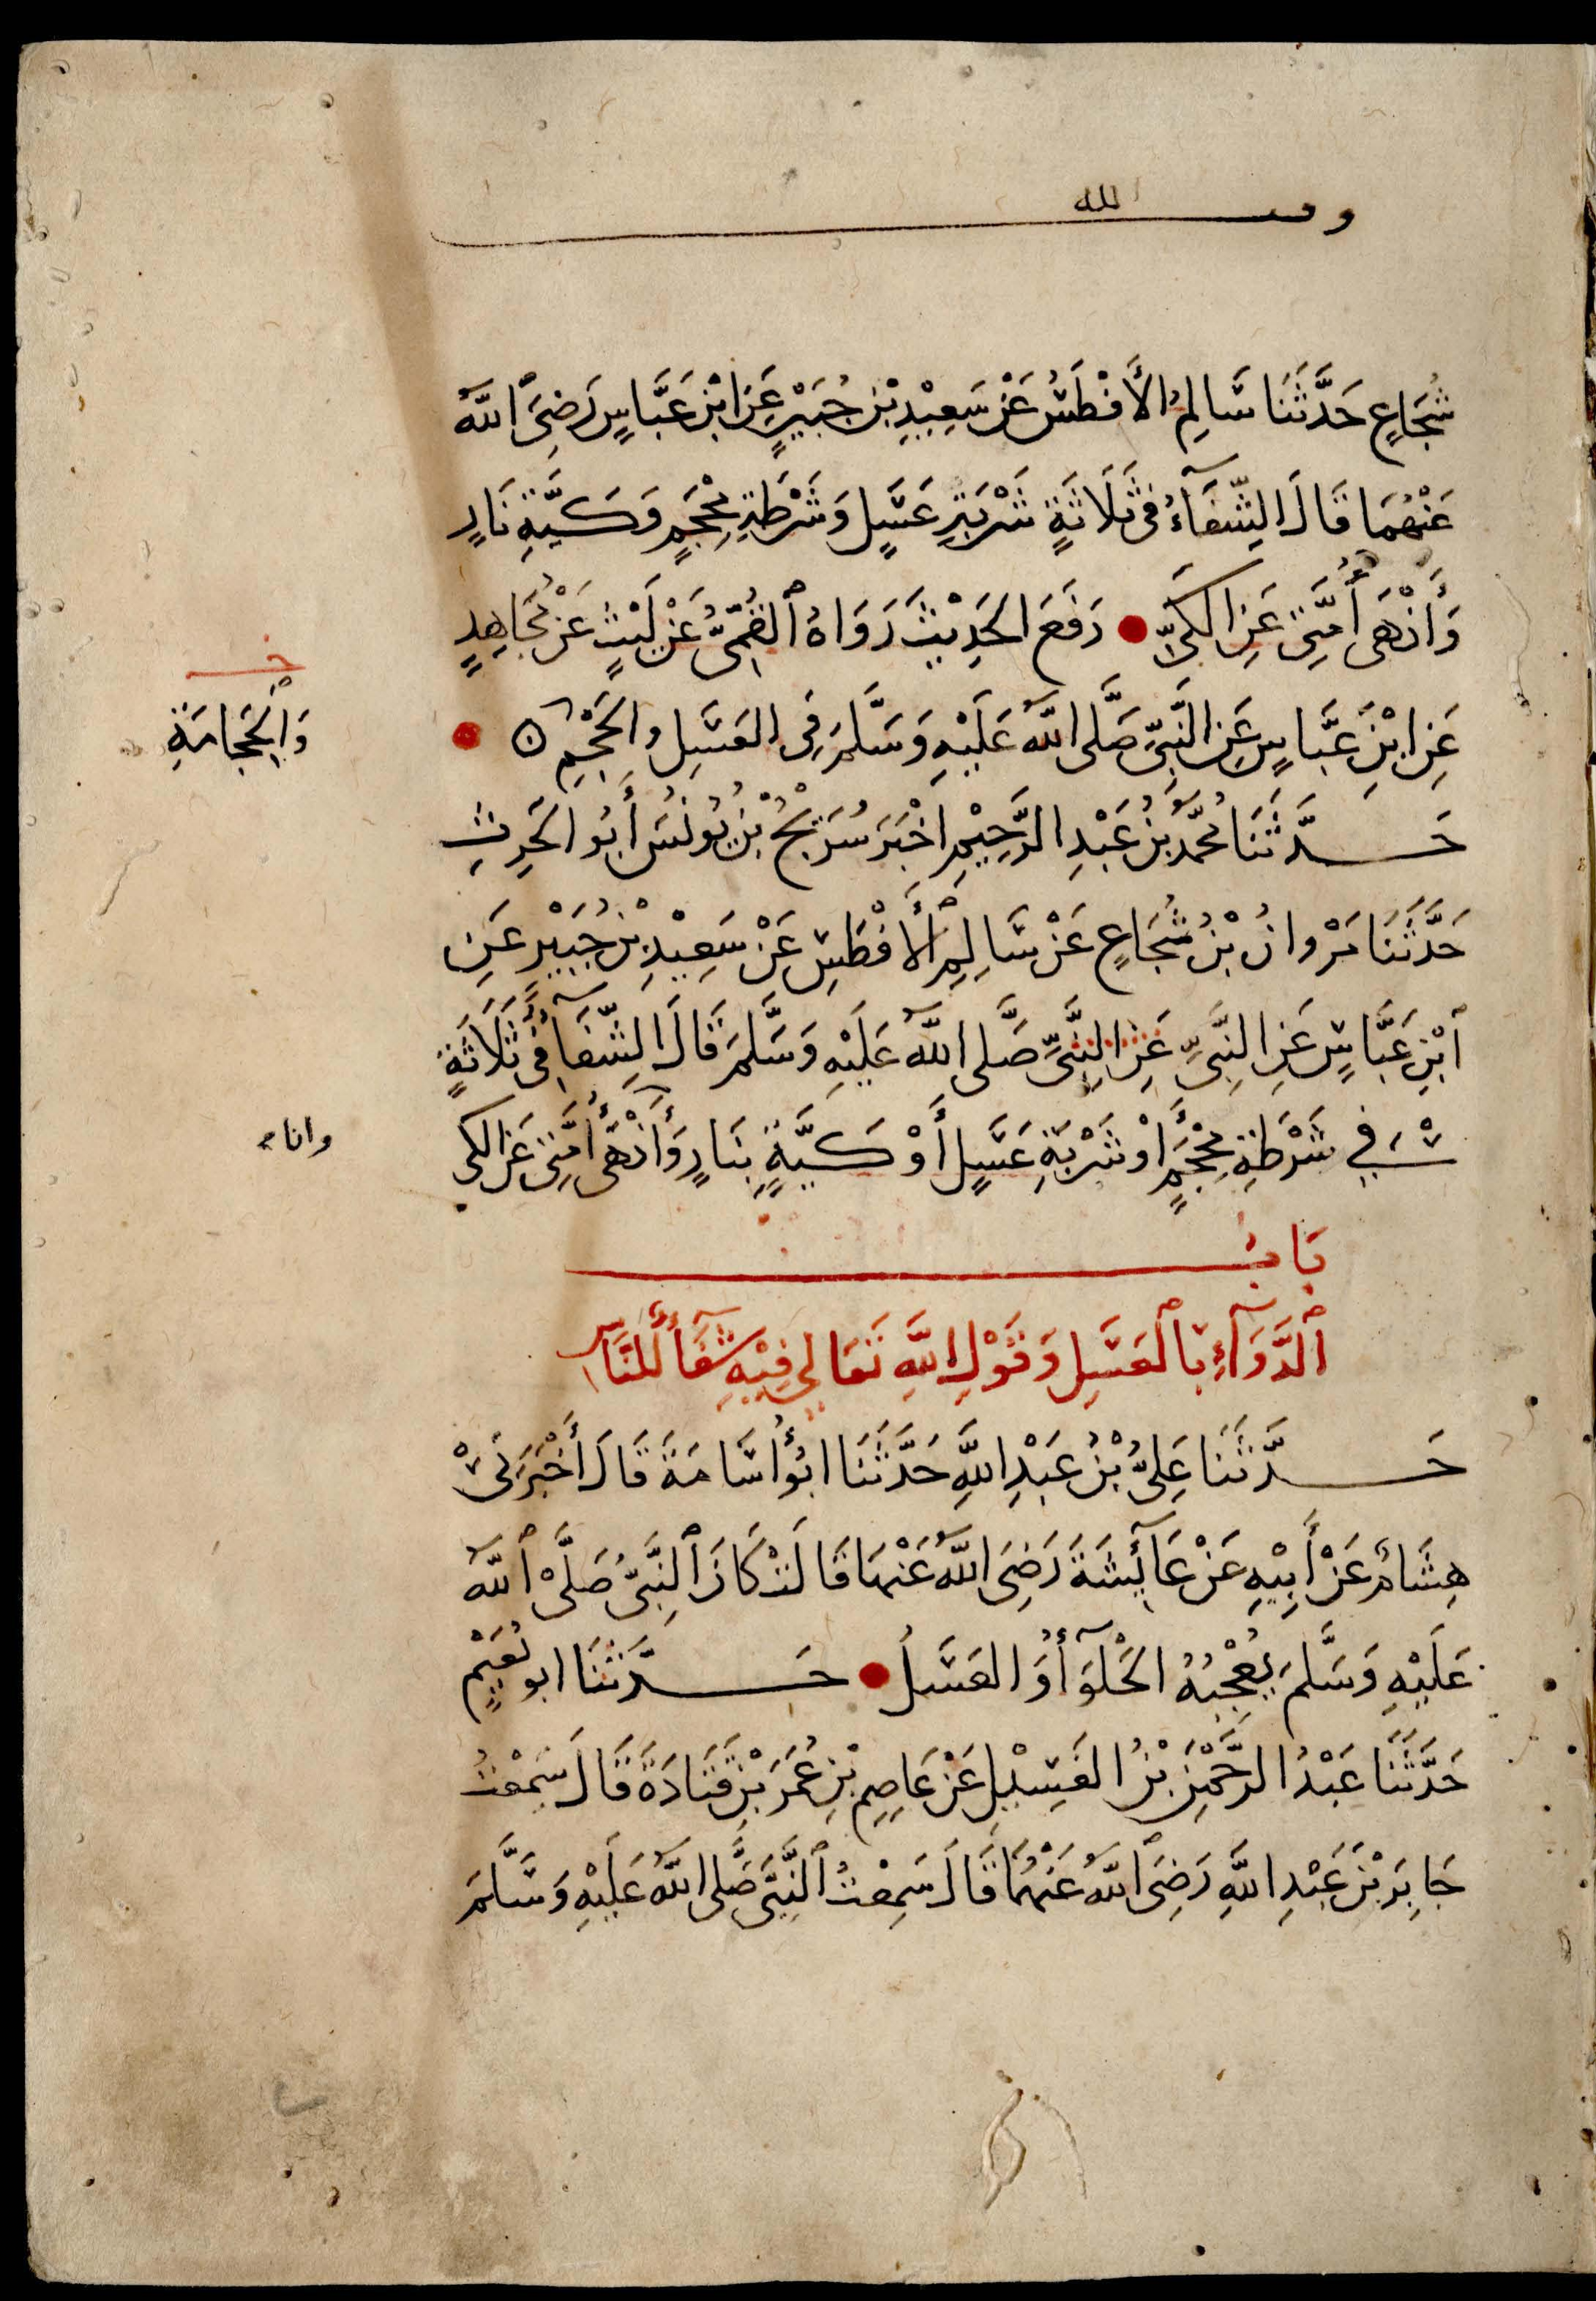 وقف لله
شُجَاعٍ حَدَّثَنَا سَالِمُ الأَفْطَسُ عَنْ سَعِيْدِ بْنِ جُبَيْرٍ عَنِ ابْنِ عَبَّاسٍ رَضِيَ اللَّهُ
عَنْهُمَا قَالَ الشِّفَآءُ فِي ثَلَاثَةٍ شَرْبَةِ عَسَلٍ وَشَرْطَةِ مِحْجَمٍ وَكَيَّةِ نَارٍ
وَأَنْهَى أُمَّتِي عَنِ الكَيِّ رَفَعَ الحَدِيْثَ رَوَاهُ القُمِّيُّ عَنْ لَيْثٍ عَنْ مُجَاهِدٍ
عَنِ ابْنِ عَبَّاسٍ عَنِ النَّبِيِّ صَلَّى اللَّهُ عَلَيْهِ وَسَلَّمَ فِي العَسَلِ والحَجْمِ
وَالحِجَامَةِ
حَدَّثَنَا مُحَمَّدُ بْنُ عَبْدِ الرَّحِيْمِ اخْبَرَ سُرَيْجُ بْنُ يُونُسَ أَبُو الحَرِثِ
حَدَّثَنَا مَرْوانُ بْنُ شُجَاعٍ عَنْ سَالِمِ الأَفْطَسِ عَنْ سَعِيْدِ بْنِ جُبَيْرٍ عَنِ
ابْنِ عَبَّاسٍ عَنِ النَّبِيِّ عَنِ النَّبِيِّ صَلَّى اللَّهُ عَلَيْهِ وَسَلَّمَ قَالَ الشِّفَآءُ فِي ثَلَاثَةٍ
فِي شَرْطَةِ مِحْجَمٍ أَوْ شَرْبَةِ عَسَلٍ أَوْ كَيَّةٍ بِنَارٍ وَأَنْهَى أُمَّتِي عَنِ الكي
وانا
بَابُ
الدَّوَآءِ بِالْعَسَلِ وَقَوْلِ اللَّهِ تَعَالِى فِيْهِ شِفَآءٌ لِلنَّاسِ
حَدَّثَنَا عَلِيُّ بْنُ عَبْدِ اللَّهِ حَدَّثَنَا ابُو أُسَامَةَ قَالَ أَخْبَرَنِيْ
هِشَامٌ عَنْ أَبِيْهِ عَنْ عَآئِشَةَ رَضِيَ اللَّهُ عَنْهَا قَالَتْ كَانَ النَّبِيُّ صَلَّى اللَّهُ
عَلَيْهِ وَسَلَّمَ يُعْجِبُهُ الحَلْوَآءُ وَالعَسَلُ حَدَّثَنَا ابو نُعَيْمٍ
حَدَّثَنَا عَبْدُ الرَّحْمَنِ بْنُ الغَسِيْلِ عَنْ عَاصِمِ بْنِ عُمَرَ بْنِ قَتَادَةَ قَالَ سَمِعْتُ
جَابِرَ بْنَ عَبْدِ اللَّهِ رَضِيَ اللَّهُ عَنْهُمَا قَالَ سَمِعْتُ النَّبِيَّ صَلَّى اللَّهُ عَلَيْهِ وَسَلَّمَ